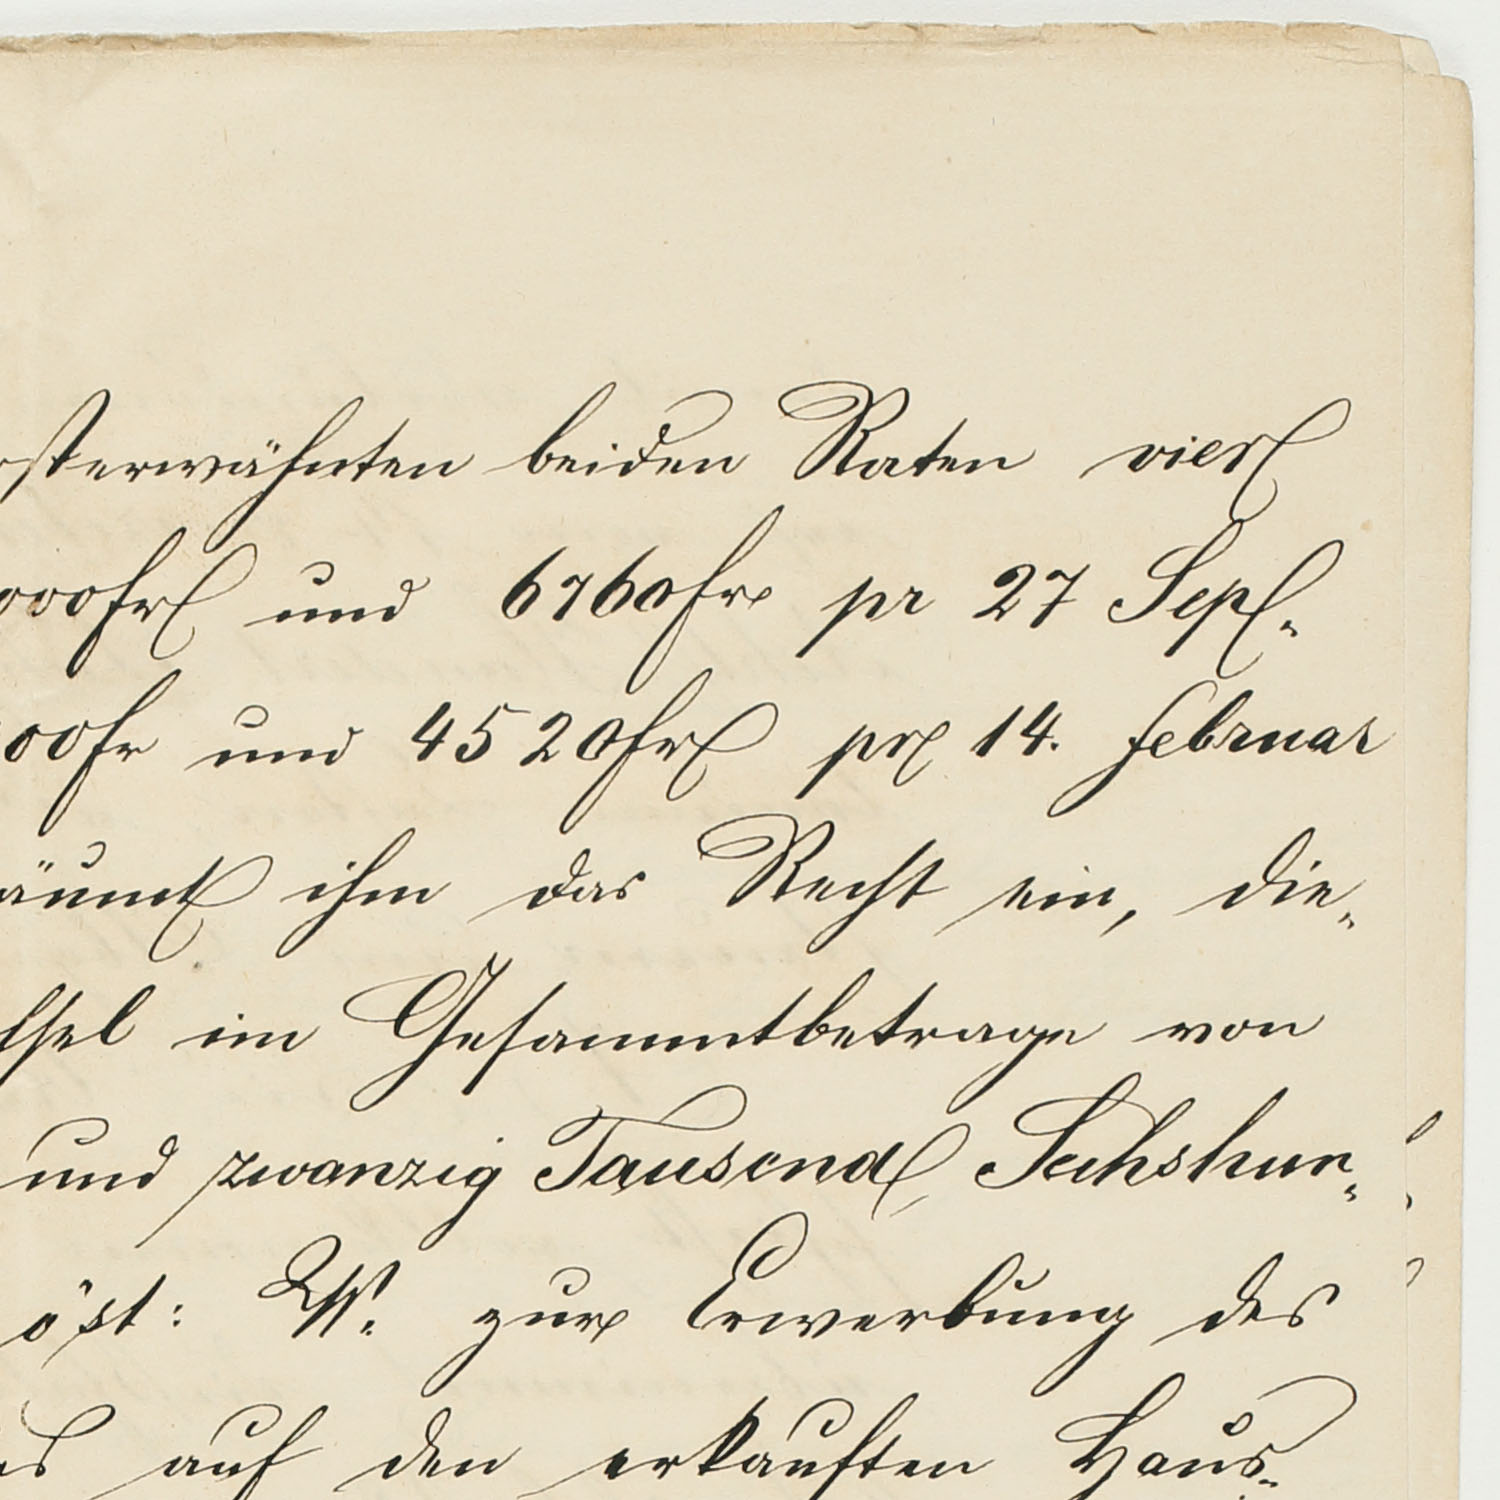 ersterwähnten beiden Raten vier
000fr und 6760fr pr 27 Sept.
00fr und 4520fr pr 14. Februar
räumt ihm das Recht ein, die„
chsel im Gesammtbetrage von
und zwanzig Tausend, Sechshun„
öst: W. zur Erwerbung des
es auf den erkauften Haus„